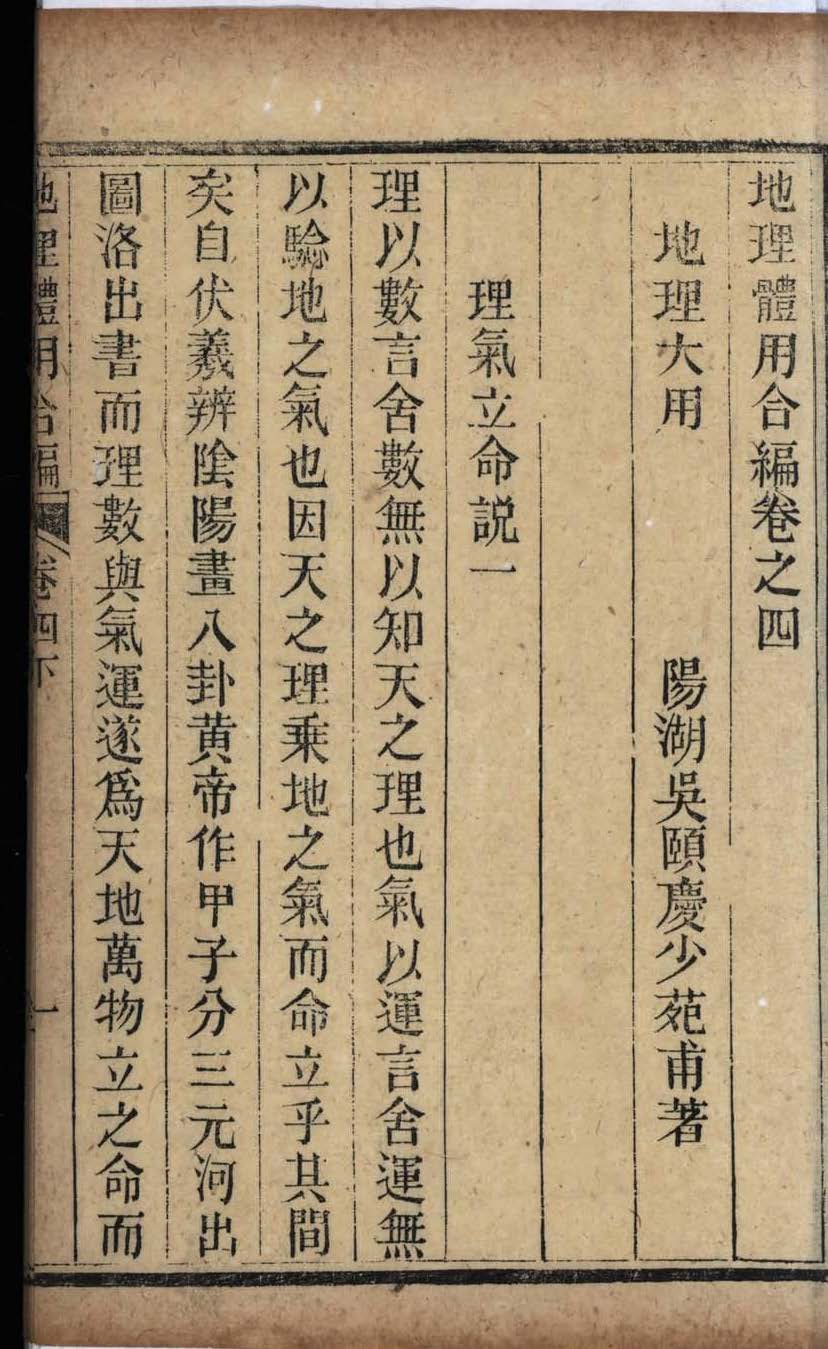 地理體用合編卷之四
地理大用 陽湖吳頤慶少苑甫著
理氣立命説一
理以數言舍數無以知天之理也氣以運言舍運無
以驗地之氣也因天之理乗地之氣而命立乎其間
矣自伏羲辨陰陽畫八卦黄帝作甲子分三元河出
圖洛出書而理數與氣運遂爲天地萬物立之命而
地理體用合編 卷四下 一